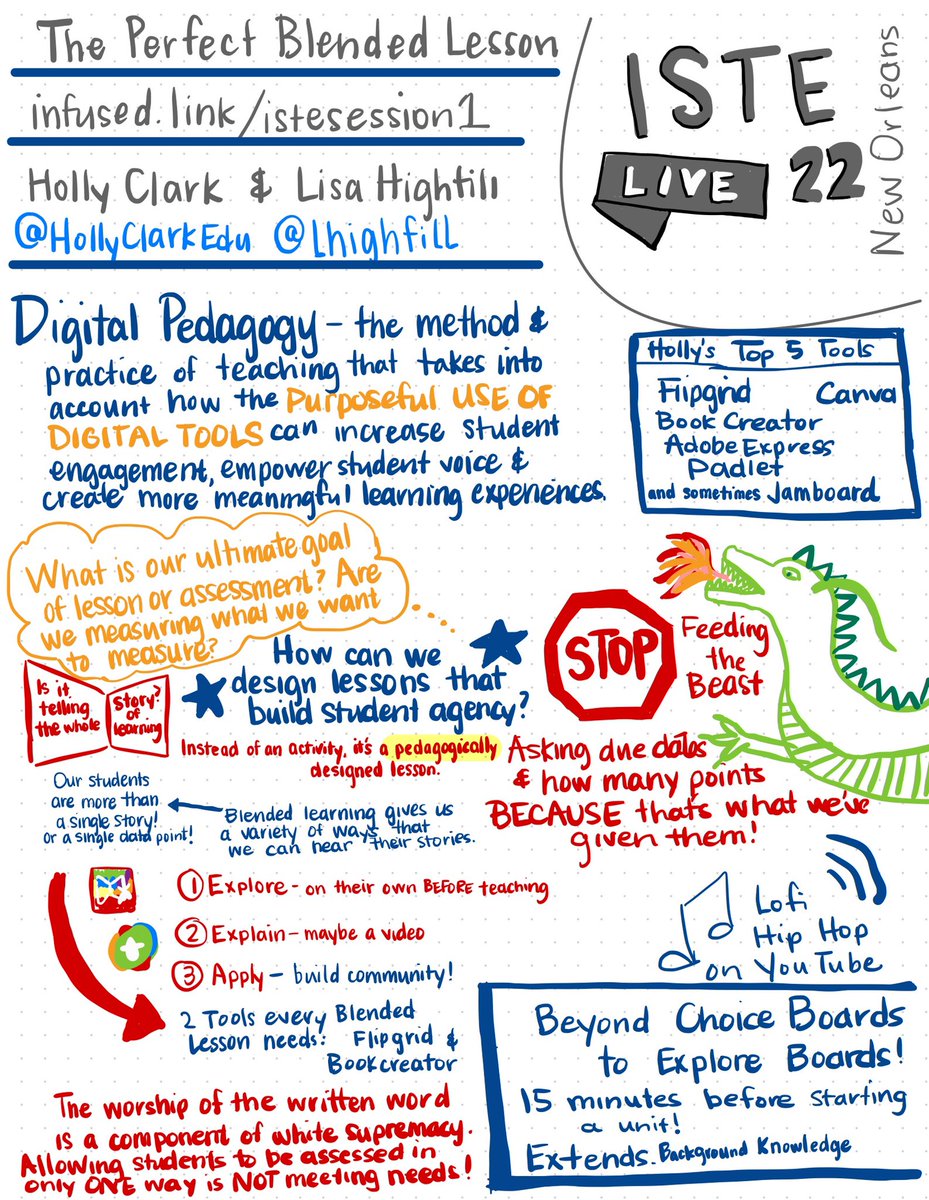 The Perfect Blended Lesson
infused.link/istesession1
Holly Clark & Lisa Highfill
@HollyClarkEdu @Lhighfill
ISTE
LIVE 22
New Orleans
Digital Pedagogy - the method &
practice of teaching that takes into
account how the Purposeful USE OF
DIGITAL TOOLS can increase student
engagement, empower student voice &
create more meaningful learning experiences.
Holly's Top 5 Tools
Flipgrid Canva
Book Creator
Adobe Express
Padlet
and sometimes Jamboard
What is our ultimate goal
of lesson or assessment? Are
we measuring what we want
to measure?
How can we
design lessons that
build student agency?
Is it
telling
the whole
story?
of
learning
Instead of an activity, it's a pedagogically
designed lesson.
STOP
Feeding
the
Beast
Asking due dates
& how many points
BECAUSE thats what we've
given them!
Our students
are more than
a single story!
or a single data point!
Blended learning gives us
a variety of ways that
we can hear their stories.
1 Explore - on their own BEFORE teaching
2 Explain - maybe a video
3 Apply - build community!
2 Tools every Blended
Lesson needs: Flipgrid &
Bookcreator
Lofi
Hip Hop
on YouTube
The worship of the written word
is a component of white supremacy.
Allowing students to be assessed in
only ONE way is NOT meeting needs!
Beyond Choice Boards
to Explore Boards!
15 minutes before starting
a unit!
Extends Background Knowledge